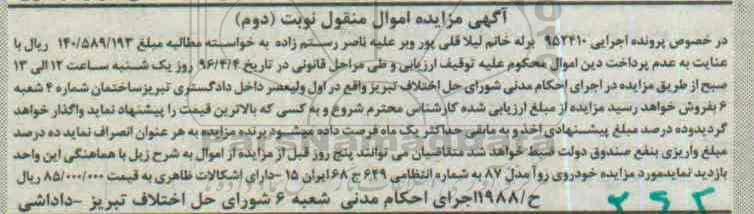 آگهی مزایده اموال منقول نوبت (دوم)
در خصوص پرونده اجرایی ۹۵۲۴۱۰ برله خانم لیلا قلی پور وبر علیه ناصر رستم زاده به خواسته مطالبه مبلغ ۱۴۰/۵۸۹/۱۹۳ ریال با
عنایت به عدم پرداخت دین اموال محکوم علیه توقیف ارزیابی و طی مراحل قانونی در تاریخ ۹۶/۴/۴ روز یک شنبه ساعت ۱۲ الی ۱۳
صبح از طریق مزایده در اجرای احکام مدنی شورای حل اختلاف تبریز واقع در اول ولیعصر داخل دادگستری تبریز ساختمان شماره ۴ شعبه
۶ بفروش خواهد رسید مزایده از مبلغ ارزیابی شده کارشناس محترم شروع و به کسی که بالاترین قیمت را پیشنهاد نماید واگذار خواهد
گردیدوده درصد مبلغ پیشنهادی اخذ و به مابقی حداکثر یک ماه فرصت داده میشود برنده مزایده به هر عنوان انصراف نماید ده درصد
مبلغ واریزی بنفع صندوق دولت ضبط خواهد شد متقاضیان می توانند پنج روز قبل از مزایده از اموال به شرح زیل با هماهنگی این واحد
بازدید نمایدمورد مزایده خودروی روآ مدل ۸۷ به شماره انتظامی ۶۴۹ ج ۶۸ ایران ۱۵ -دارای اشکالات ظاهری به قیمت ۸۵/۰۰۰/۰۰۰ ریال
ح/۱۱۹۸۸ اجرای احکام مدنی شعبه ۶ شورای حل اختلاف تبریز -داداشی